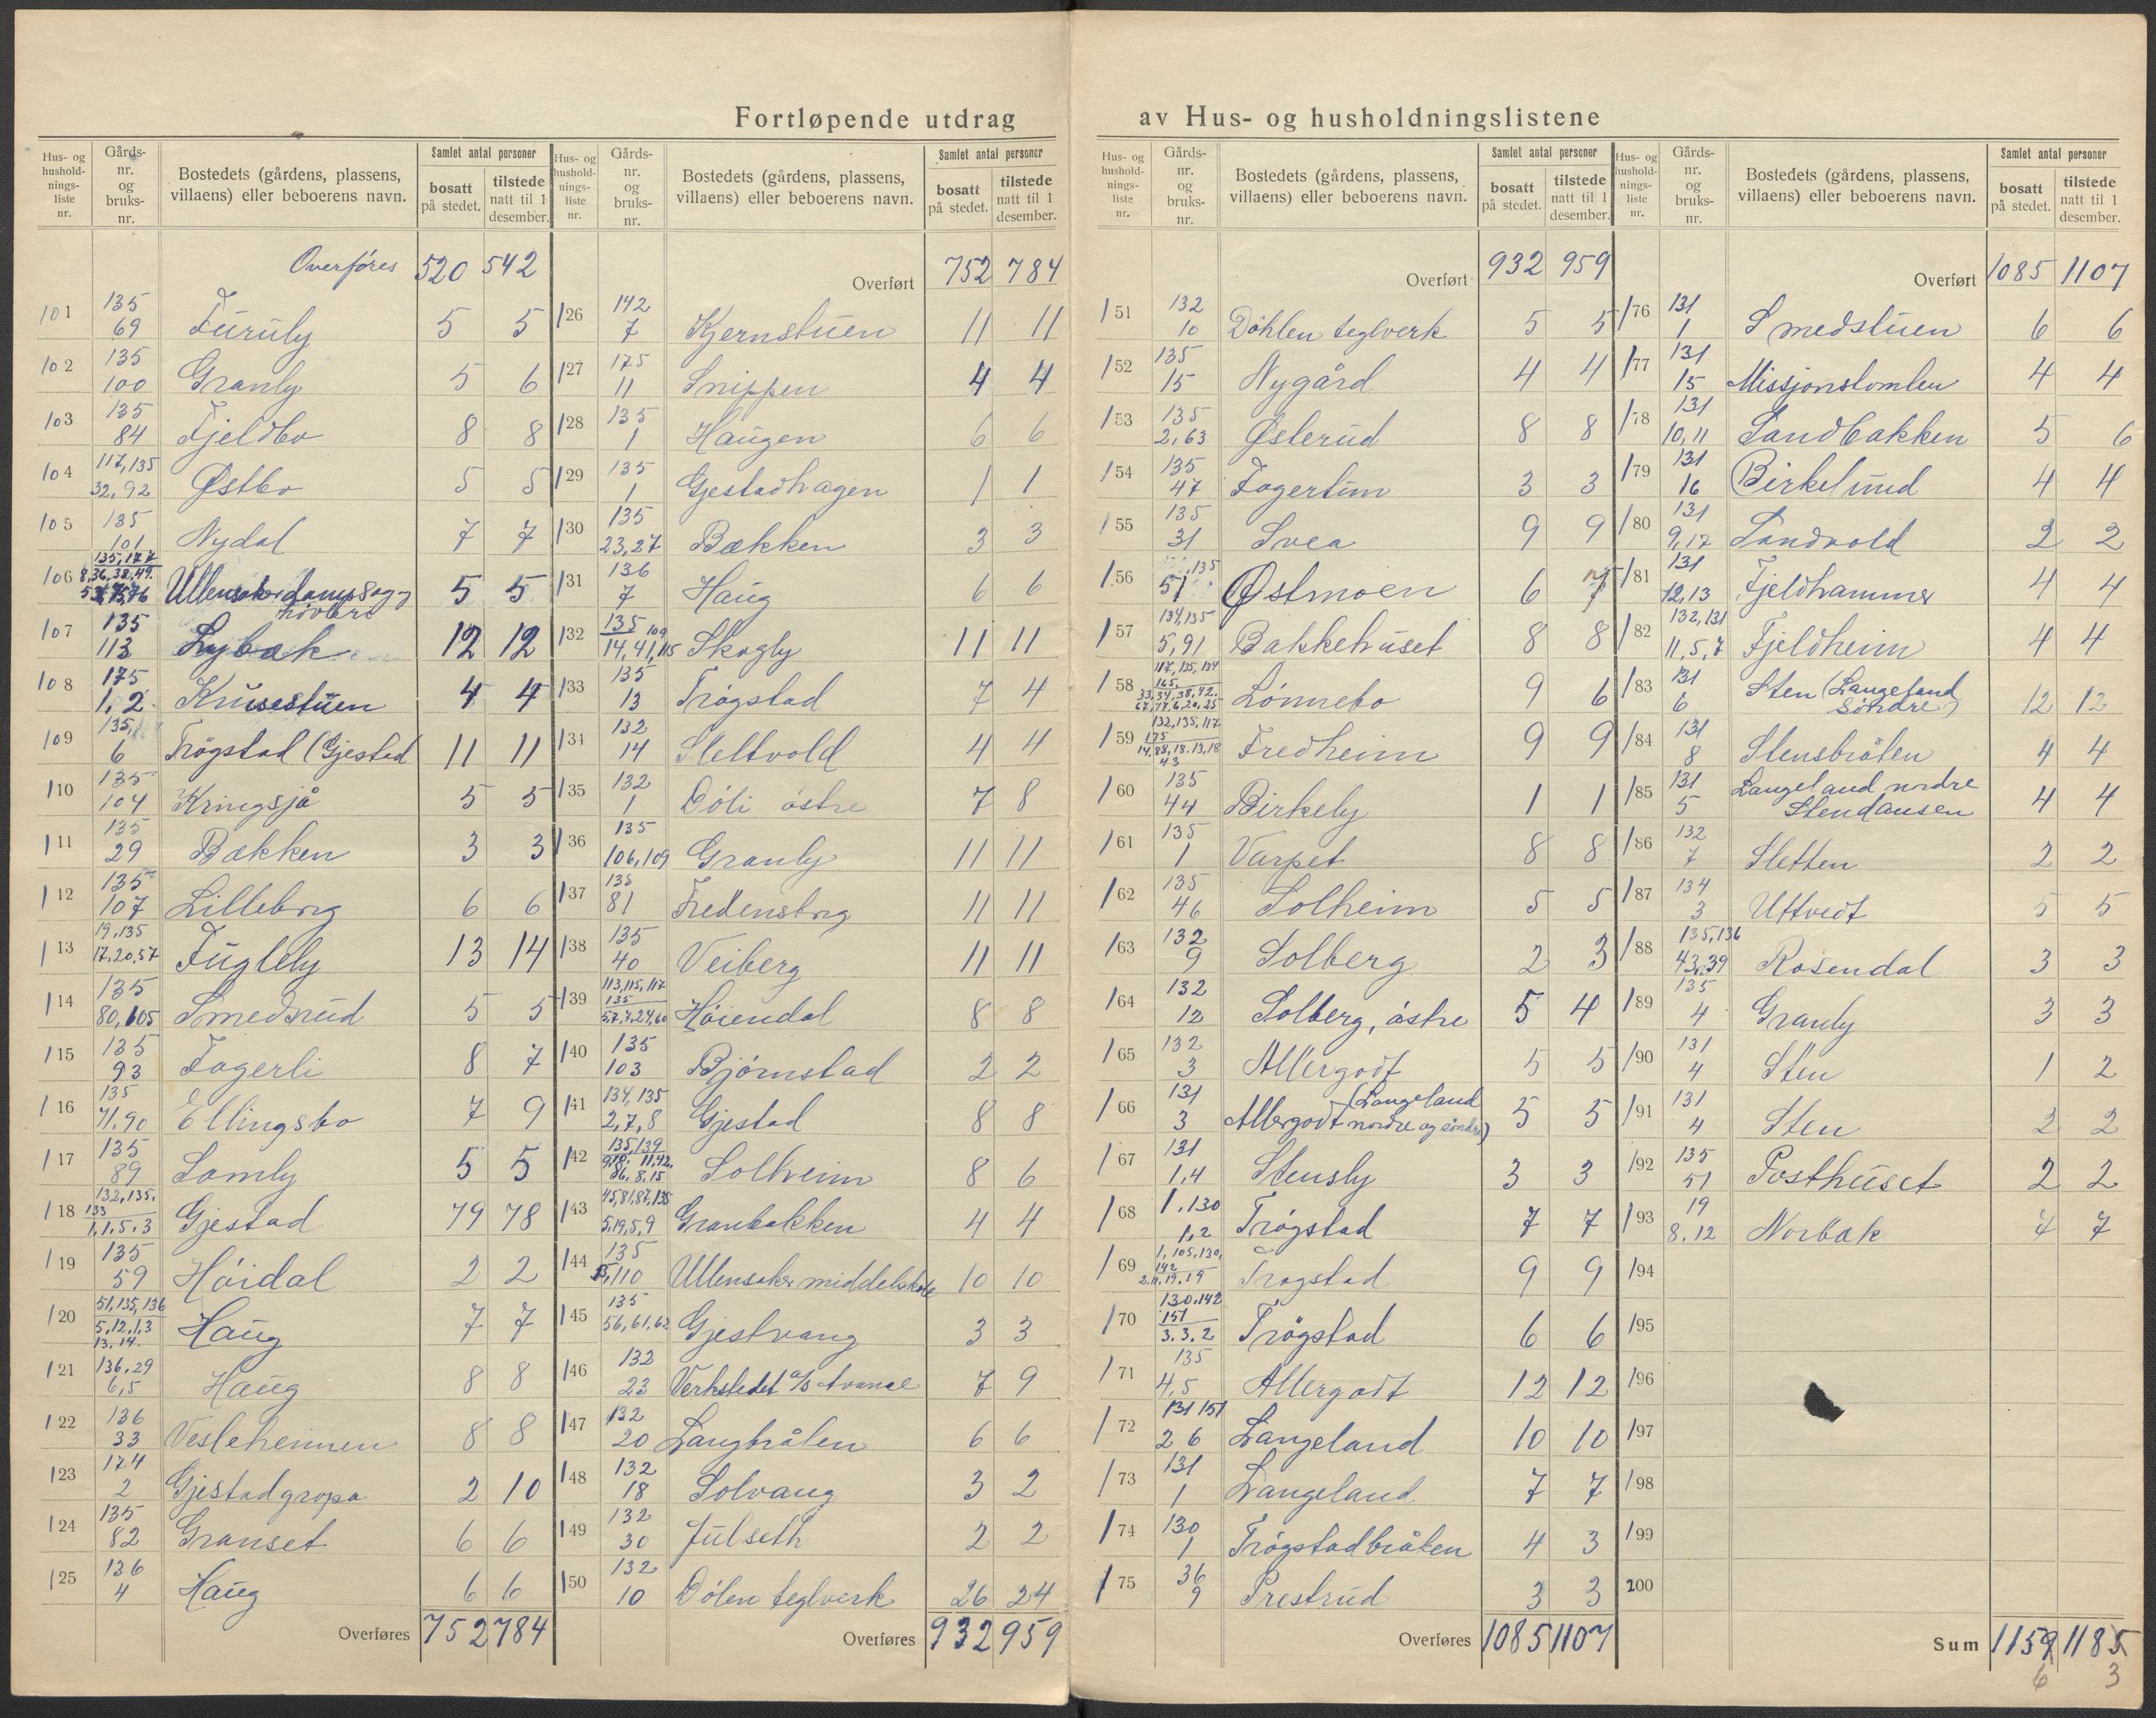 Fortløpende utdrag av Hus- og husholdningslistene
Hus- og husholdningsliste nr. | Gårds-nr. og bruks-nr. | Bostedets (gårdens, plassens, villaens) eller beboerens navn. | Samlet antal personer: bosatt på stedet. | tilstede natt til 1 desember.
Overføres 520 542
101 135 69 Furuly 5 5
102 135 100 Granly 5 6
103 135 84 Fjeldbo 8 8
104 117,135 32,92 Østbo 5 5
105 135 101 Nydal 7 7
106 135,177 8,36,38,49. Ullensaker dampsag- 5 5
107 135 113 Lybæk 12 12
108 175 1,2 Krusestuen 4 4
109 135, 6 Trögstad (Gjestad 11 11
110 135 104 Kringsjå 5 5
111 135 29 Bækken 3 3
112 135 107 Lilleborg 6 6
113 19,135 17,20,57 Fugleby 13 14
114 135 80,105 Smedsrud 5 5
115 135 93 Fagerli 8 7
116 135 71,90 Ellingsbo 7 9
117 135 89 Somly 5 5
118 132,135, 133 1,1,5,3 Gjestad 79 78
119 135 59 Höidal 2 2
120 51,135,136 5,12,1,3 13,14. Haug 7 7
121 136,29 6,5 Haug 8 8
122 136 33 Vesleheimen 8 8
123 174 2 Gjestadgropa 2 10
124 135 82 Granset 6 6
125 136 4 Haug 6 6
Overføres 752 784
Overført 752 784
126 142 7 Kjernstuen 11 11
127 175 11 Snippen 4 4
128 135 1 Haugen 6 6
129 135 1 Gjestadhagen 1 1
130 135 23,27 Bækken 3 3
131 136 7 Haug 6 6
132 135 109 14,41,115 Skogly 11 11
133 135 13 Trögstad 7 4
134 132 14 Slettvold 4 4
135 132 1 Döli östre 7 8
136 135 106,109 Granly 11 11
137 135 81 Fredensborg 11 11
138 135 40 Veiberg 11 11
139 113,115,117 135 5,7,7,24,60 Höiendal 8 8
140 135 103 Bjørnstad 2 2
141 134,135 2,7,8 Gjestad 8 8
142 135,139 86,8,15 Solheim 8 6
143 45,81,87,135 5,19,5,9 Granbakken 4 4
144 135 110 Ullensaker middelskole 10 10
145 135 56,61,62 Gjestvang 3 3
146 132 23 Verkstedet a/s Avance 7 9
147 132 20 Langbråten 6 6
148 132 18 Solvang 3 2
149 132 30 Julseth 2 2
150 132 10 Dölen teglverk 26 24
Overføres 932 959
Overført 932 959
151 132 10 Döhlen teglverk 5 5
152 135 15 Nygård 4 4
153 135 2,63 Østerud 8 8
154 135 47 Fagertun 3 3
155 135 31 Svea 9 9
156 135 51 Østmoen 6 7
157 134,135 5,91 Bakkehuset 8 8
158 117,135,134 165 33,34,38,42. 67,77,6,20,25 Lönnebo 9 6
159 132,135,117 175 14,88,18,13,18 43 Fredheim 9 9
160 135 44 Birkely 1 1
161 135 1 Varpet 8 8
162 135 46 Solheim 5 5
163 132 9 Solberg 2 3
164 132 12 Solberg, östre 5 4
165 132 3 Allergodt 5 5
166 131 3 Allergodt (Langeland nordre og söndre) 5 5
167 131 1,4 Stensby 3 3
168 1,130 1,2 Trögstad 7 7
169 1,105,130, 142 2,11,19,19 Trogstad 9 9
170 130,142 151 3.3.2 Trögstad 6 6
171 135 4,5 Allergodt 12 12
172 131 151 2 6 Langeland 10 10
173 131 1 Langeland 7 7
174 130 1 Trögstadbråten 4 3
175 36 9 Prestrud 3 3
Overføres 1085 1107
Overført 1085 1107
176 131 1 Smedstuen 6 6
177 131 15 Missjonstomten 4 4
178 131 10,11 Sandbakken 5 6
179 131 16 Birkelund 4 4
180 131 9,17 Sandvold 2 2
181 131 12,13 Fjeldhammer 4 4
182 132,131 11,5,7 Fjeldheim 4 4
183 131 6 Sten (Langeland söndre) 12 12
184 131 8 Stensbråten 4 4
185 131 5 Langeland nordre Stendansen 4 4
186 132 7 Sletten 2 2
187 134 3 Uttvedt 5 5
188 135,136 43,39 Rosendal 3 3
189 135 4 Granly 3 3
190 131 4 Sten 1 2
191 131 4 Sten 2 2
192 135 51 Posthuset 2 2
193 19 8,12 Norbak 7 7
194
195
196
197
198
199
200
Sum 1159 1185
6 3